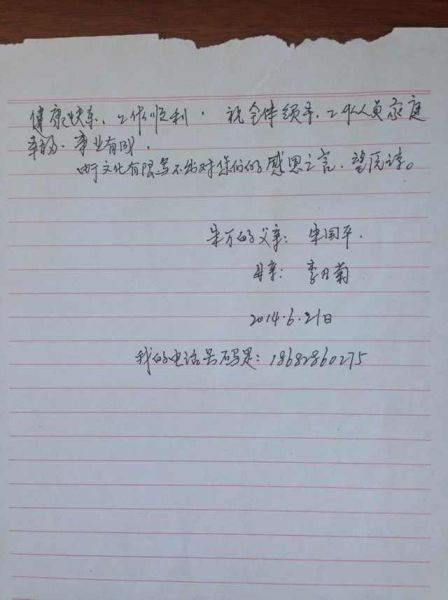 健康快乐、工作顺利，祝全体领导、工作人员家庭
幸福、事业有成，
由于文化有限写不出对您们的感恩之言，望原谅。
宋万的父亲：宋国平.
母亲：李月菊
2014.6.21日
我的电话号码是：18682860275